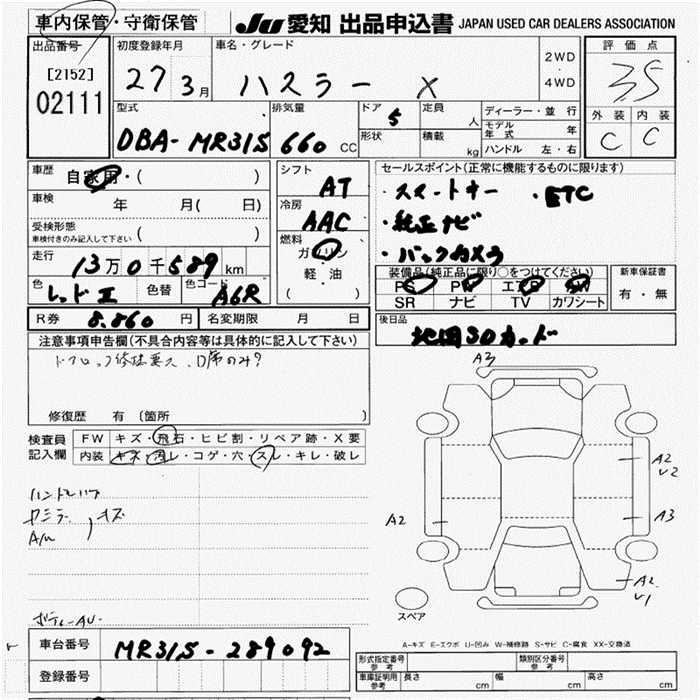 車内保管・守衛保管
JU 愛知 出品申込書 JAPAN USED CAR DEALERS ASSOCIATION
出品番号
[2152]
02111
初度登録年月
27 3月
車名・グレード
ハスラー X
2WD
4WD
評価点
3.5
外装 内装
C C
型式
DBA-MR31S
排気量
660 CC
ドア
5
形状
定員
人
積載
kg
ディーラー・並行
モデル年式 年
ハンドル 左・右
車歴
自家用・( )
車検
年 月( 日)
受検形態
車検付きのみ記入して下さい ( )
走行
13万0千589km
色
レッドエ
色替
色コード
A6R
R券 8.860 円
名変期限 月 日
シフト
AT
冷房
AAC
燃料
ガソリン
軽・油
( )
セールスポイント(正常に機能するものに限ります)
・スマートキー ・ETC
・純正ナビ
・バックカメラ
装備品(純正品に限り○をつけてください)
PS PW エアB AW
SR ナビ TV カワシート
新車保証書
有・無
後日品
地図SDカード
注意事項申告欄(不具合内容等は具体的に記入して下さい)
ドアロック修理要ス、D席のみ?
修復歴 有 〔箇所 〕
検査員
記入欄
FW キズ・飛石・ヒビ割・リペア跡・X要
内装 キズ・汚レ・コゲ・穴・スレ・キレ・破レ
A3
A2
V2
A2
A3
A2
V1
スペア
A-キズ E-エクボ U-凹み W-補修跡 S-サビ C-腐食 XX-交換済
車台番号 MR31S-289092
登録番号
形式指定番号
参考
類別区分番号
参考
車庫証明用
参考
長さ cm
幅 cm
高さ cm